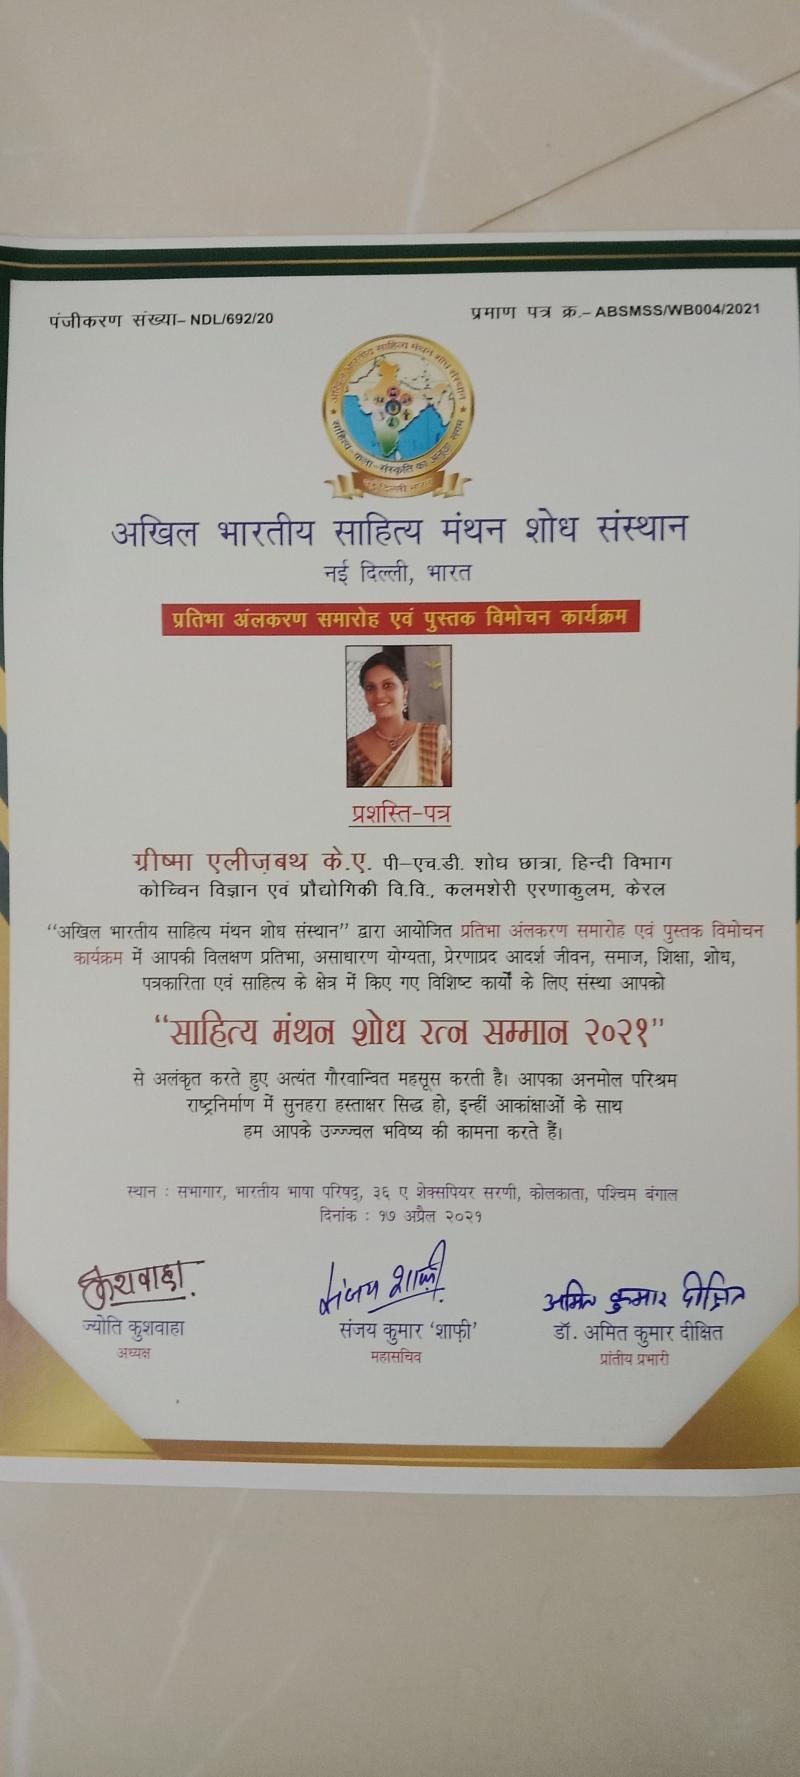 पंजीकरण संख्या– NDL/692/20
प्रमाण पत्र क्र.– ABSMSS/WB004/2021
अखिल भारतीय साहित्य मंथन शोध संस्थान
साहित्य-कला-संस्कृति का अनूठा संगम
नई दिल्ली भारत
अखिल भारतीय साहित्य मंथन शोध संस्थान
नई दिल्ली, भारत
प्रतिभा अंलकरण समारोह एवं पुस्तक विमोचन कार्यक्रम
प्रशस्ति-पत्र
ग्रीष्मा एलीज़बथ के.ए. पी–एच.डी. शोध छात्रा, हिन्दी विभाग
कोच्चिन विज्ञान एवं प्रौद्योगिकी वि.वि., कलमशेरी एरणाकुलम, केरल
“अखिल भारतीय साहित्य मंथन शोध संस्थान” द्वारा आयोजित प्रतिभा अंलकरण समारोह एवं पुस्तक विमोचन
कार्यक्रम में आपकी विलक्षण प्रतिभा, असाधारण योग्यता, प्रेरणाप्रद आदर्श जीवन, समाज, शिक्षा, शोध,
पत्रकारिता एवं साहित्य के क्षेत्र में किए गए विशिष्ट कार्यों के लिए संस्था आपको
“साहित्य मंथन शोध रत्न सम्मान २०२१”
से अलंकृत करते हुए अत्यंत गौरवान्वित महसूस करती है। आपका अनमोल परिश्रम
राष्ट्रनिर्माण में सुनहरा हस्ताक्षर सिद्ध हो, इन्हीं आकांक्षाओं के साथ
हम आपके उज्ज्वल भविष्य की कामना करते हैं।
स्थान : सभागार, भारतीय भाषा परिषद्, ३६ ए शेक्सपियर सरणी, कोलकाता, पश्चिम बंगाल
दिनांक : १७ अप्रैल २०२१
कुशवाहा
संजय शाफ़ी
अमित कुमार दीक्षित
ज्योति कुशवाहा
संजय कुमार ‘शाफ़ी’
डॉ. अमित कुमार दीक्षित
अध्यक्ष
महासचिव
प्रांतीय प्रभारी